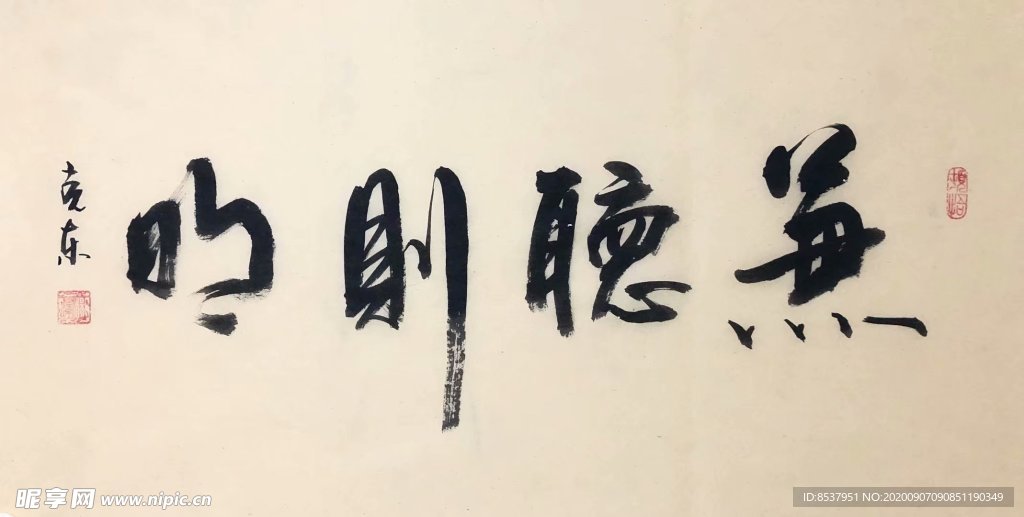 兼聽則明
克东
昵享网 www.nipic.cn
ID:8537951 NO:20200907090851190349